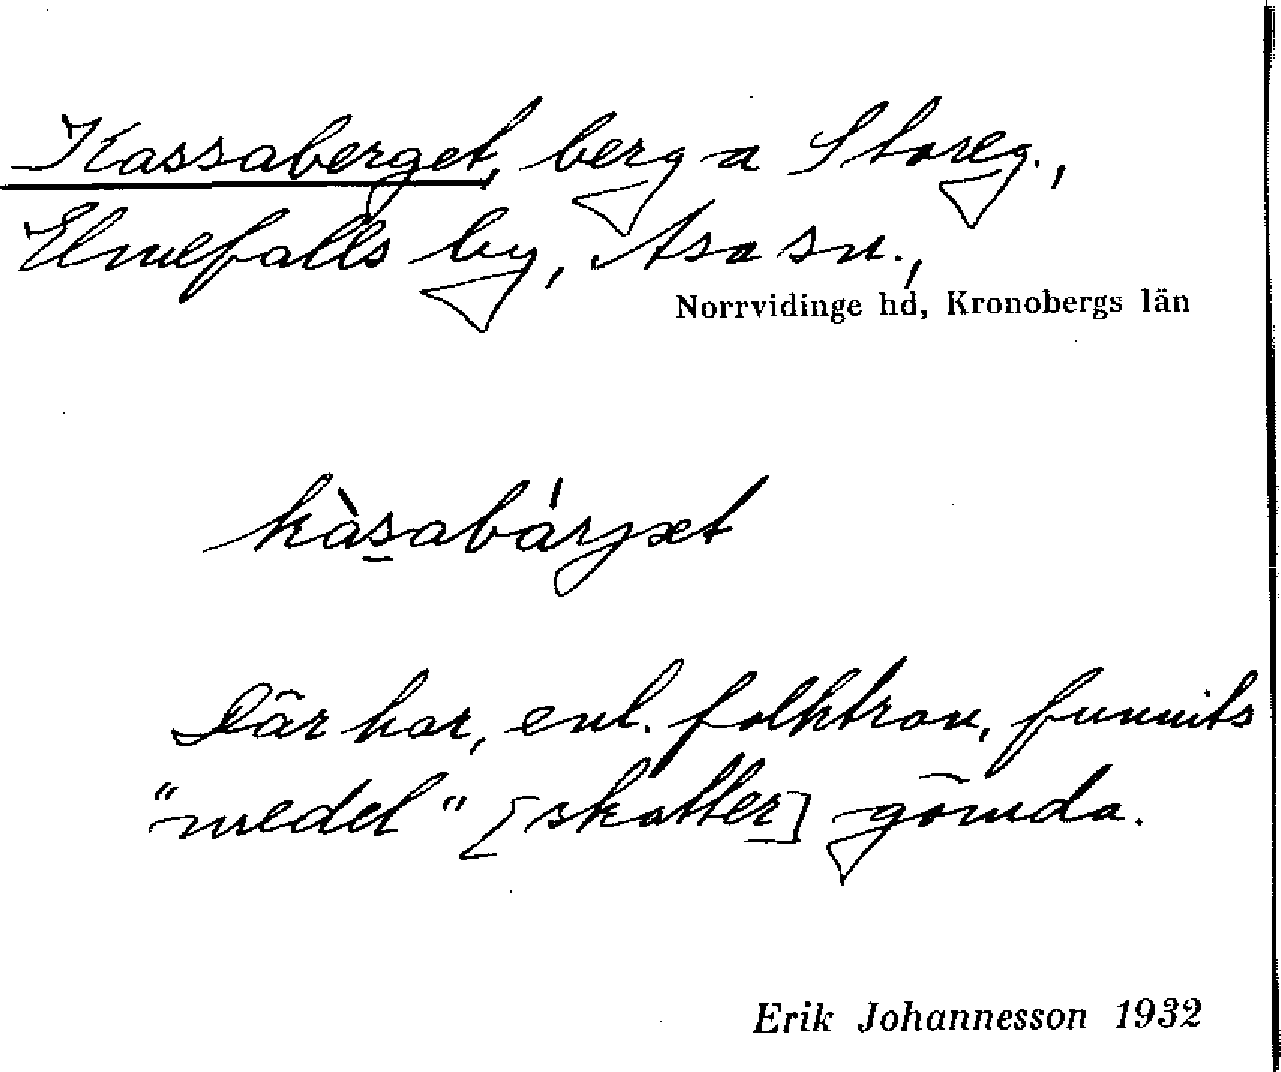 Kassaberget, berg a Storeg.,
Elmefalls by, Asa sn.,
Norrvidinge hd, Kronobergs län
kàsabárjæt
Där har, enl. folktron, funnits
"medel" [skatter] gömda.
Erik Johannesson 1932